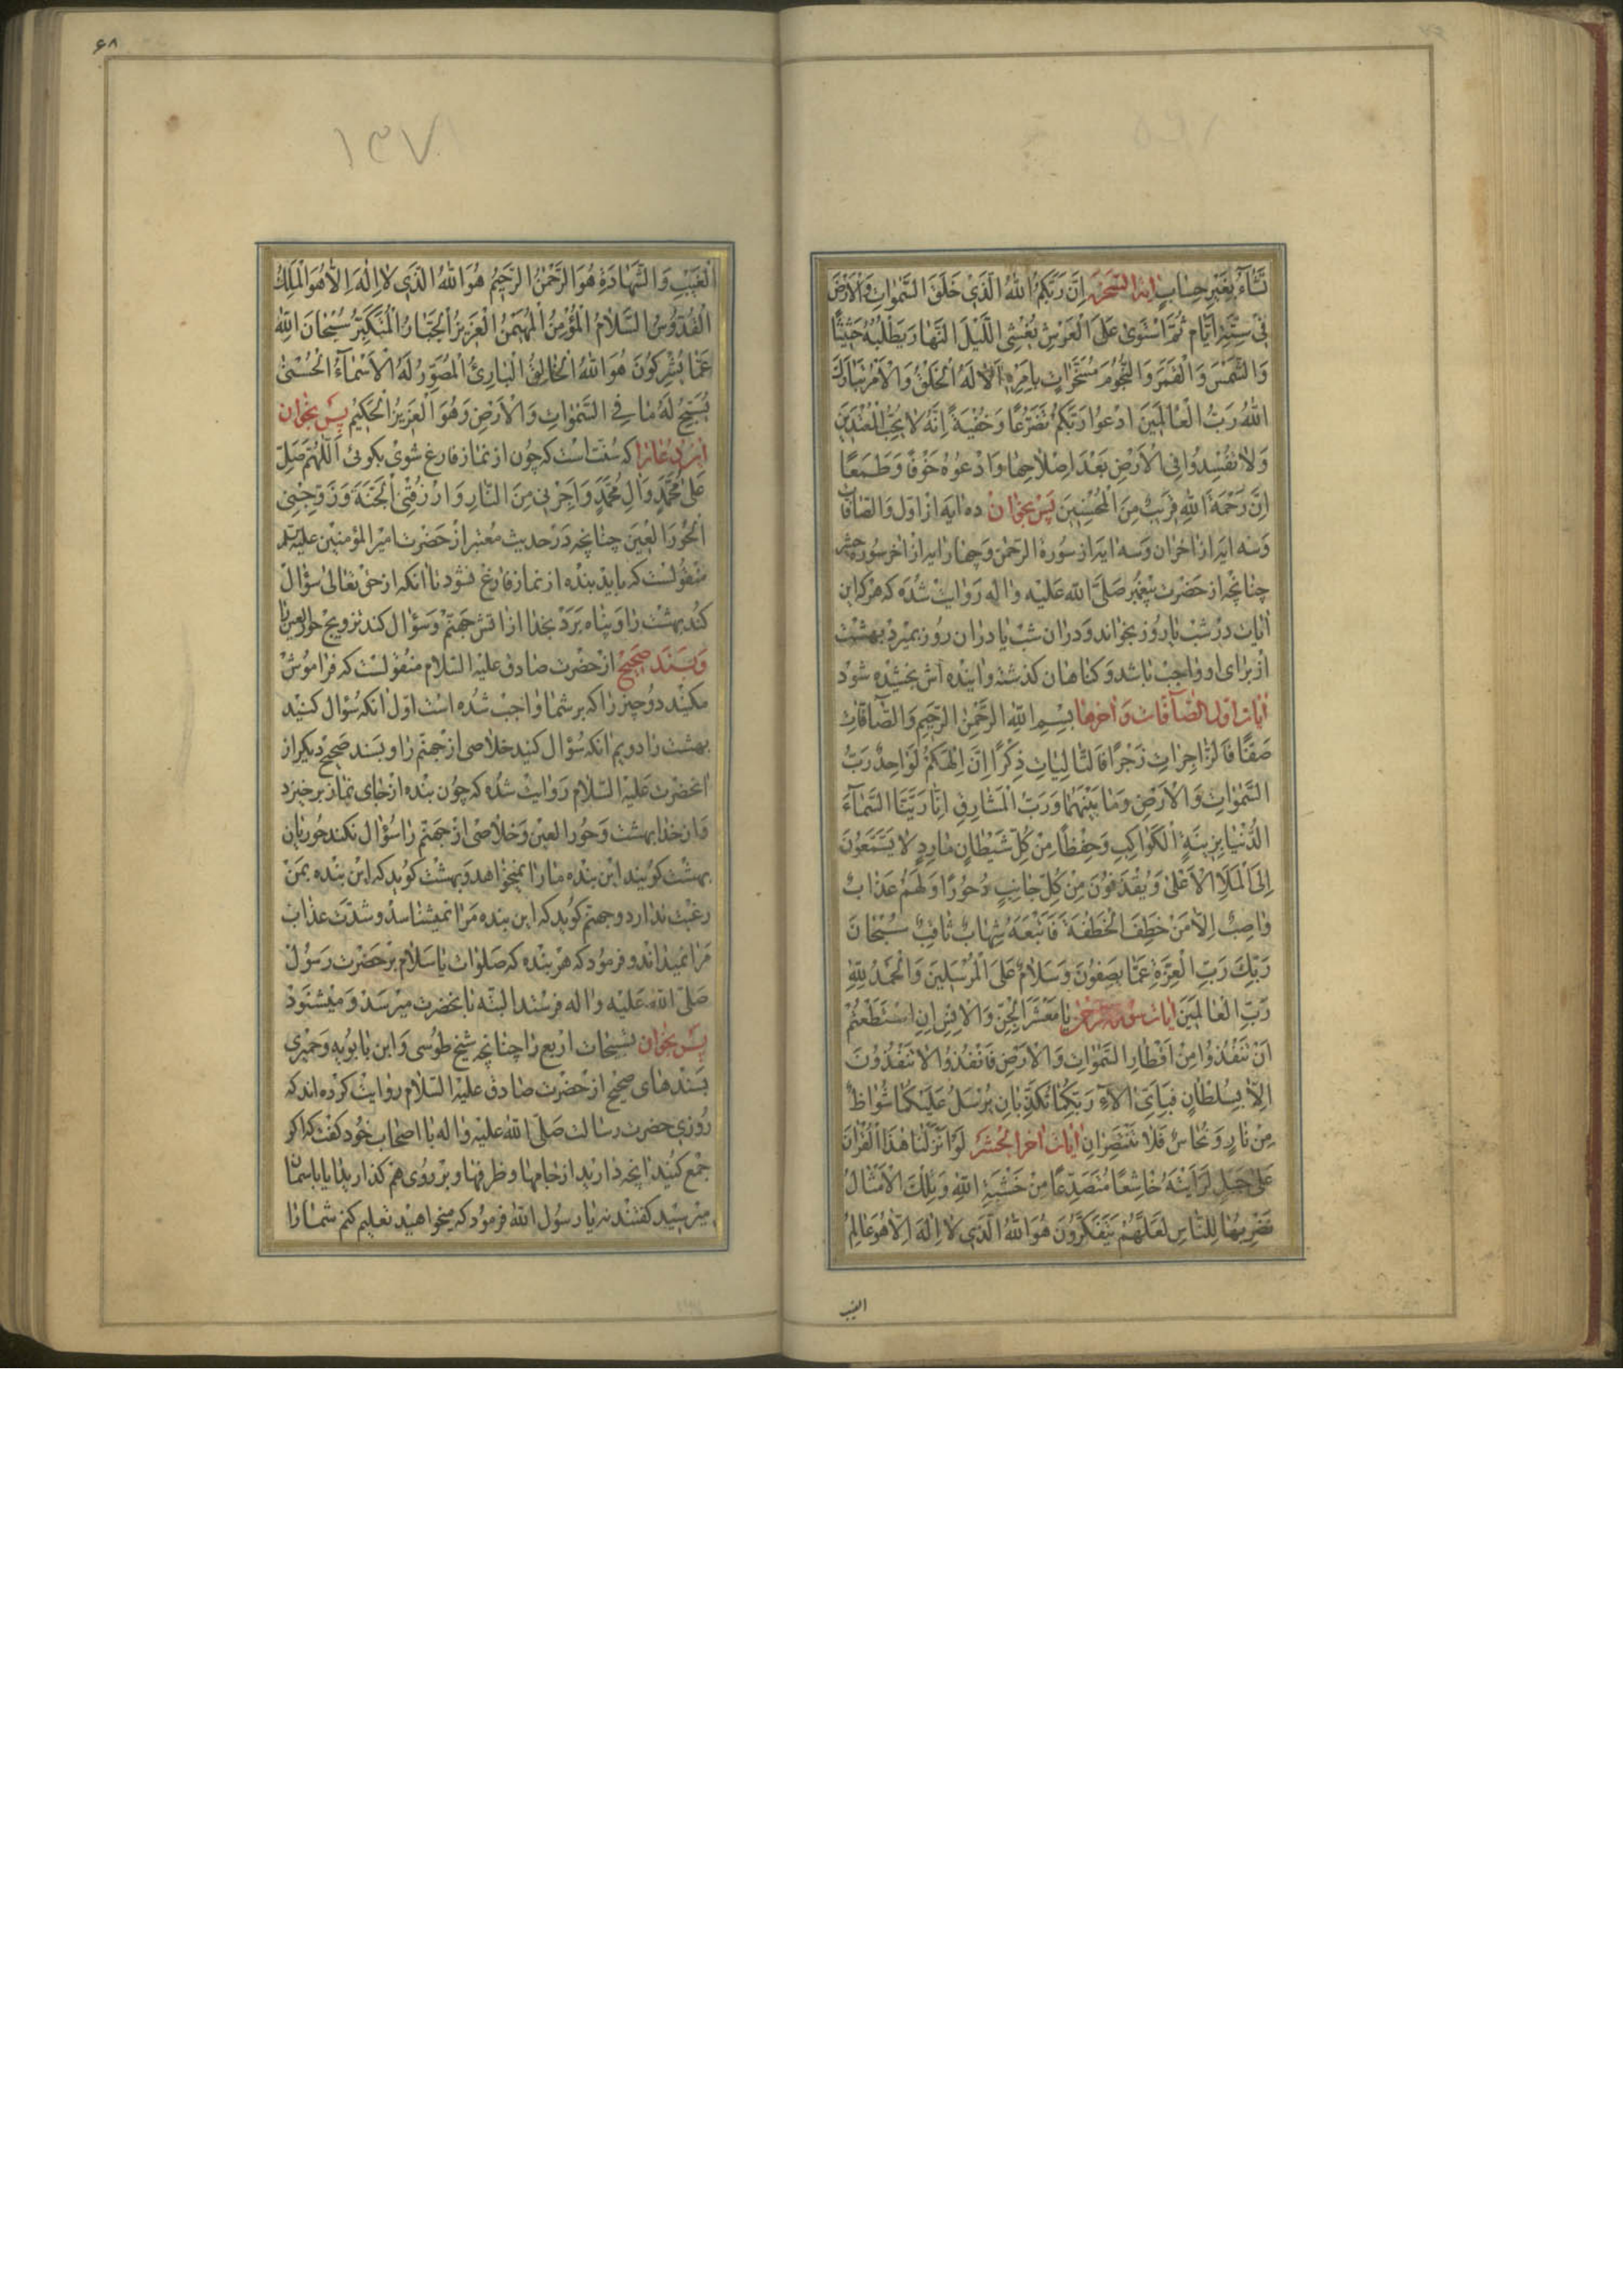 تَشٰاءُ بِغَيْرِ حِسٰابٍ اية السّخره اِنَّ رَبَّكُمُ اللّٰهُ الَّذِي خَلَقَ السَّمٰوٰاتِ وَالْاَرْضَ
فِي سِتَّةِ اَيّٰامٍ ثُمَّ اسْتَوىٰ عَلَى الْعَرْشِ يُغْشِي اللَّيْلَ النَّهٰارَ يَطْلُبُهُ حَثِيثًا
وَالشَّمْسَ وَالْقَمَرَ وَالنُّجُومَ مُسَخَّرٰاتٍ بِاَمْرِهِ اَلٰا لَهُ الْخَلْقُ وَالْاَمْرُ تَبٰارَكَ
اللّٰهُ رَبُّ الْعٰالَمِينَ ادْعُوا رَبَّكُمْ تَضَرُّعًا وَخُفْيَةً اِنَّهُ لٰا يُحِبُّ الْمُعْتَدِينَ
وَلٰا تُفْسِدُوا فِي الْاَرْضِ بَعْدَ اِصْلٰاحِهٰا وَادْعُوهُ خَوْفًا وَطَمَعًا
اِنَّ رَحْمَةَ اللّٰهِ قَرِيبٌ مِنَ الْمُحْسِنِينَ پس بخوان ده ايه از اول والصافات
وسه ايه از اخران وسه ايه از سورة الرحمن وچهار ايه از اخر سوره حشر
چنانچه از حضرت پيغمبر صلّى الله عليه واله روايت شده كه هركه اين
ايات در شب يا روز بخواند ودران شب يا دران روز بميرد بهشت
از براى او واجب باشد وكناهان كذشته وايندهاش بخشيده شود
ايات اول الصّافّات واخرها بِسْمِ اللّٰهِ الرَّحْمٰنِ الرَّحِيمِ وَالصّٰافّٰاتِ
صَفًّا فَالزّٰاجِرٰاتِ زَجْرًا فَالتّٰالِيٰاتِ ذِكْرًا اِنَّ اِلٰهَكُمْ لَوٰاحِدٌ رَبُّ
السَّمٰوٰاتِ وَالْاَرْضِ وَمٰا بَيْنَهُمٰا وَرَبُّ الْمَشٰارِقِ اِنّٰا زَيَّنَّا السَّمٰاءَ
الدُّنْيٰا بِزِينَةٍ الْكَوٰاكِبِ وَحِفْظًا مِنْ كُلِّ شَيْطٰانٍ مٰارِدٍ لٰا يَسَّمَّعُونَ
اِلَى الْمَلَاِ الْاَعْلىٰ وَيُقْذَفُونَ مِنْ كُلِّ جٰانِبٍ دُحُورًا وَلَهُمْ عَذٰابٌ
وٰاصِبٌ اِلّٰا مَنْ خَطِفَ الْخَطْفَةَ فَاَتْبَعَهُ شِهٰابٌ ثٰاقِبٌ سُبْحٰانَ
رَبِّكَ رَبِّ الْعِزَّةِ عَمّٰا يَصِفُونَ وَسَلٰامٌ عَلَى الْمُرْسَلِينَ وَالْحَمْدُ لِلّٰهِ
رَبِّ الْعٰالَمِينَ ايات سوره الرحمن يٰا مَعْشَرَ الْجِنِّ وَالْاِنْسِ اِنِ اسْتَطَعْتُمْ
اَنْ تَنْفُذُوا مِنْ اَقْطٰارِ السَّمٰوٰاتِ وَالْاَرْضِ فَانْفُذُوا لٰا تَنْفُذُونَ
اِلّٰا بِسُلْطٰانٍ فَبِاَيِّ اٰلٰاءِ رَبِّكُمٰا تُكَذِّبٰانِ يُرْسَلُ عَلَيْكُمٰا شُوٰاظٌ
مِنْ نٰارٍ وَنُحٰاسٌ فَلٰا تَنْتَصِرٰانِ ايات اخر الحشر لَوْ اَنْزَلْنٰا هٰذَا الْقُرْاٰنَ
عَلىٰ جَبَلٍ لَرَاَيْتَهُ خٰاشِعًا مُتَصَدِّعًا مِنْ خَشْيَةِ اللّٰهِ وَتِلْكَ الْاَمْثٰالُ
نَضْرِبُهٰا لِلنّٰاسِ لَعَلَّهُمْ يَتَفَكَّرُونَ هُوَ اللّٰهُ الَّذِي لٰا اِلٰهَ اِلّٰا هُوَ عٰالِمُ
الغيب
۶۸
۱۳۷
الْغَيْبِ وَالشَّهٰادَةِ هُوَ الرَّحْمٰنُ الرَّحِيمُ هُوَ اللّٰهُ الَّذِي لٰا اِلٰهَ اِلّٰا هُوَ الْمَلِكُ
الْقُدُّوسُ السَّلٰامُ الْمُؤْمِنُ الْمُهَيْمِنُ الْعَزِيزُ الْجَبّٰارُ الْمُتَكَبِّرُ سُبْحٰانَ اللّٰهِ
عَمّٰا يُشْرِكُونَ هُوَ اللّٰهُ الْخٰالِقُ الْبٰارِئُ الْمُصَوِّرُ لَهُ الْاَسْمٰاءُ الْحُسْنىٰ
يُسَبِّحُ لَهُ مٰا فِي السَّمٰوٰاتِ وَالْاَرْضِ وَهُوَ الْعَزِيزُ الْحَكِيمُ پس بخوان
اين دعا را كه سنت است كه چون از نماز فارغ شوى بكوئى اَللّٰهُمَّ صَلِّ
عَلىٰ مُحَمَّدٍ وَاٰلِ مُحَمَّدٍ وَاَجِرْنِي مِنَ النّٰارِ وَارْزُقْنِي الْجَنَّةَ وَزَوِّجْنِي
الْحُورَ الْعِينَ چنانچه در حديث معتبر از حضرت امير المؤمنين عليه السلم
منقولست كه بايد بنده از نماز فارغ نشود تا انكه از حق تعالى سؤال
كند بهشت را و پناه برد بخدا از اتش جهنم وسؤال كند تزويج حورالعين را
وبسند صحيح از حضرت صادق عليه السلام منقولست كه فراموش
مكنيد دوچيز را كه بر شما واجب شده است اول انكه سؤال كنيد
بهشت را دويم انكه سؤال كنيد خلاصى از جهنم را وبسند صحيح ديكر از
انحضرت عليه السلام روايت شده كه چون بنده از جاى نماز برخيزد
واز خدا بهشت وحور العين وخلاصى از جهنم را سؤال نكند حوريان
بهشت كويند اين بنده ما را نميخواهد وبهشت كويد كه اين بنده بمن
رغبت ندارد وجهنم كويد كه اين بنده مرا نميشناسد وشدت عذاب
مرا نميداند وفرمود كه هر بنده كه صلوات يا سلام بر حضرت رسول
صلّى الله عليه واله فرستد البته بانحضرت ميرسد وميشنود
پس بخوان تسبيحات اربع را چنانچه شيخ طوسى وابن بابويه وحميرى
بسندهاى صحيح از حضرت صادق عليه السلام روايت كرده اند كه
روزى حضرت رسالت صلّى الله عليه واله با اصحاب خود كفت كه اكر
جمع كنيد انچه داريد از جامها وظرفها وبر روى هم كذاريد ايا باسمان
ميرسيد كفتند نه يا رسول الله فرمود كه ميخواهيد تعليم كنم شما را